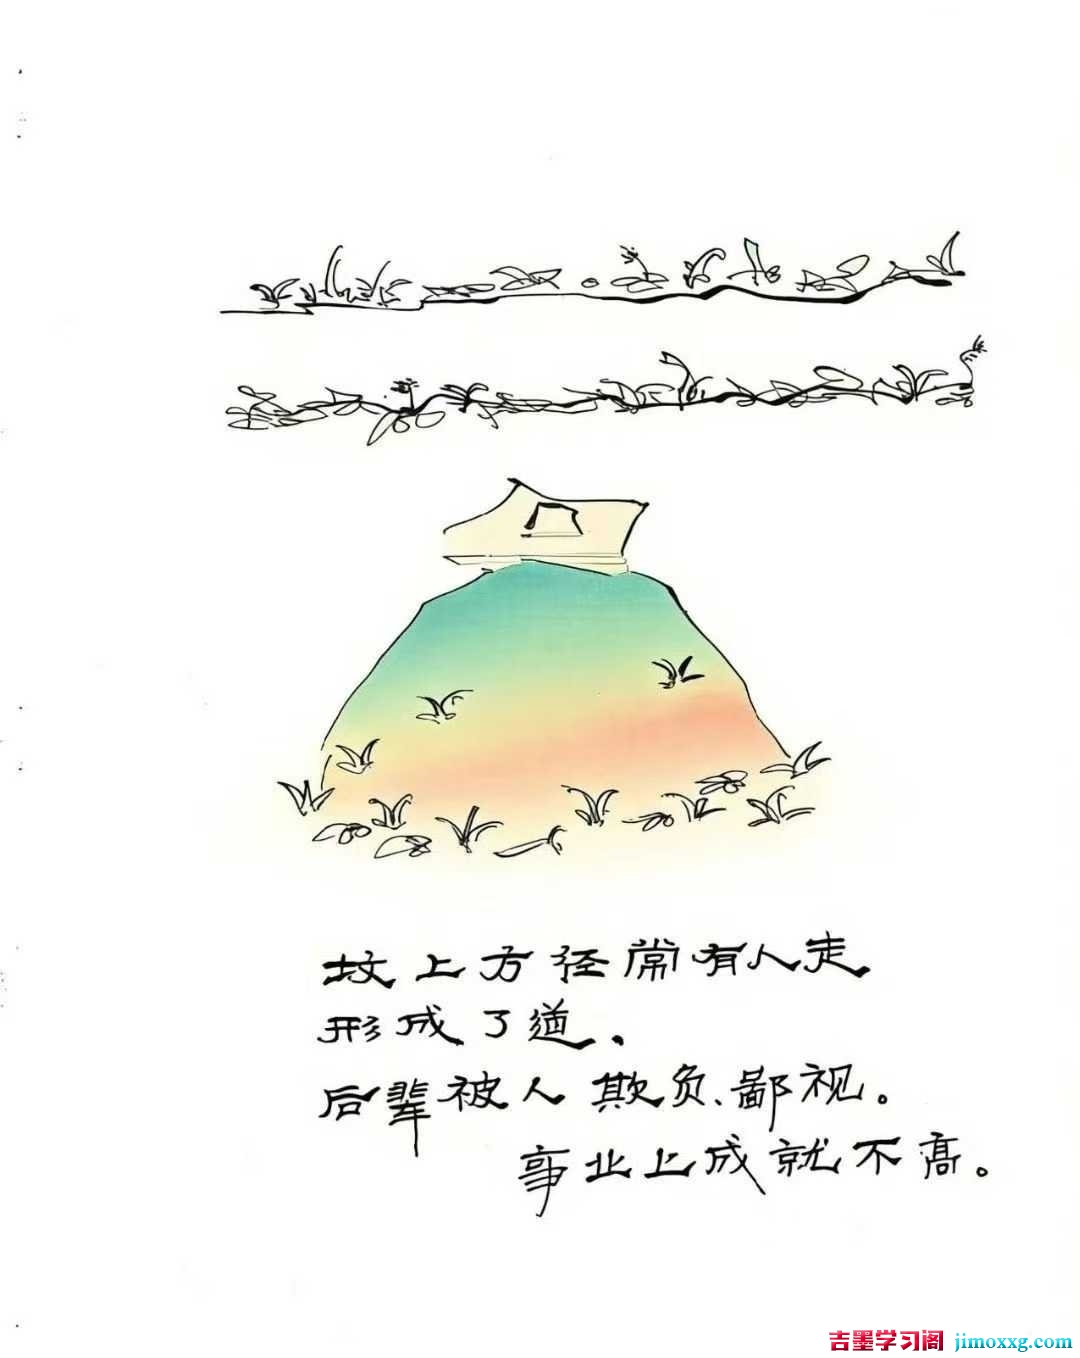 坟上方径常有人走
形成了道、
后辈被人欺负、鄙视。
事业上成就不高。
吉墨学习阁 jimoxxg.com